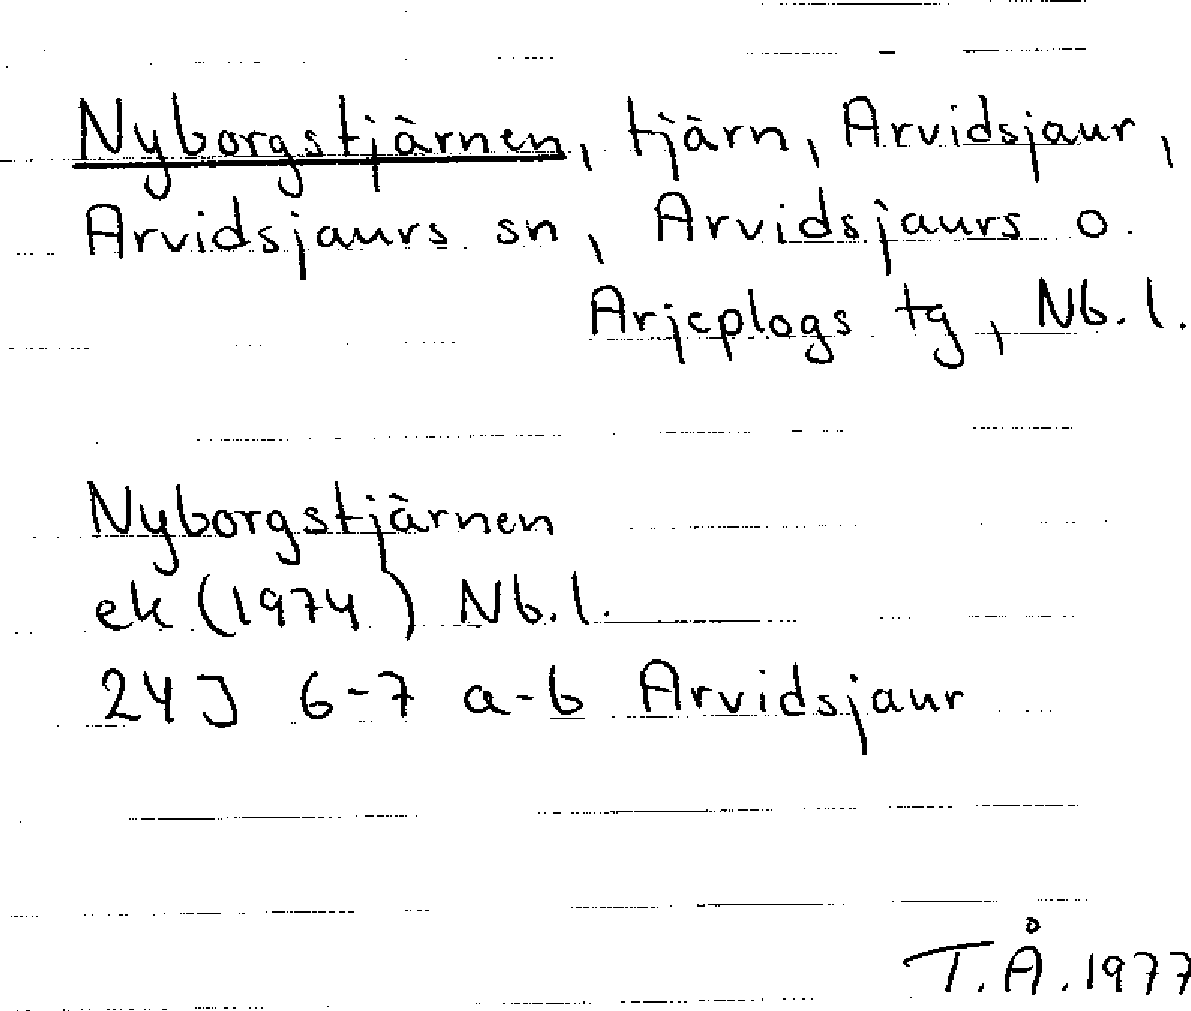 Nyborgstjärnen, tjärn, Arvidsjaur,
Arvidsjaurs sn, Arvidsjaurs o.
Arjeplogs tg, Nb.l.
Nyborgstjärnen
ek (1974) Nb.l.
24J 6-7 a-b Arvidsjaur
T.Å.1977